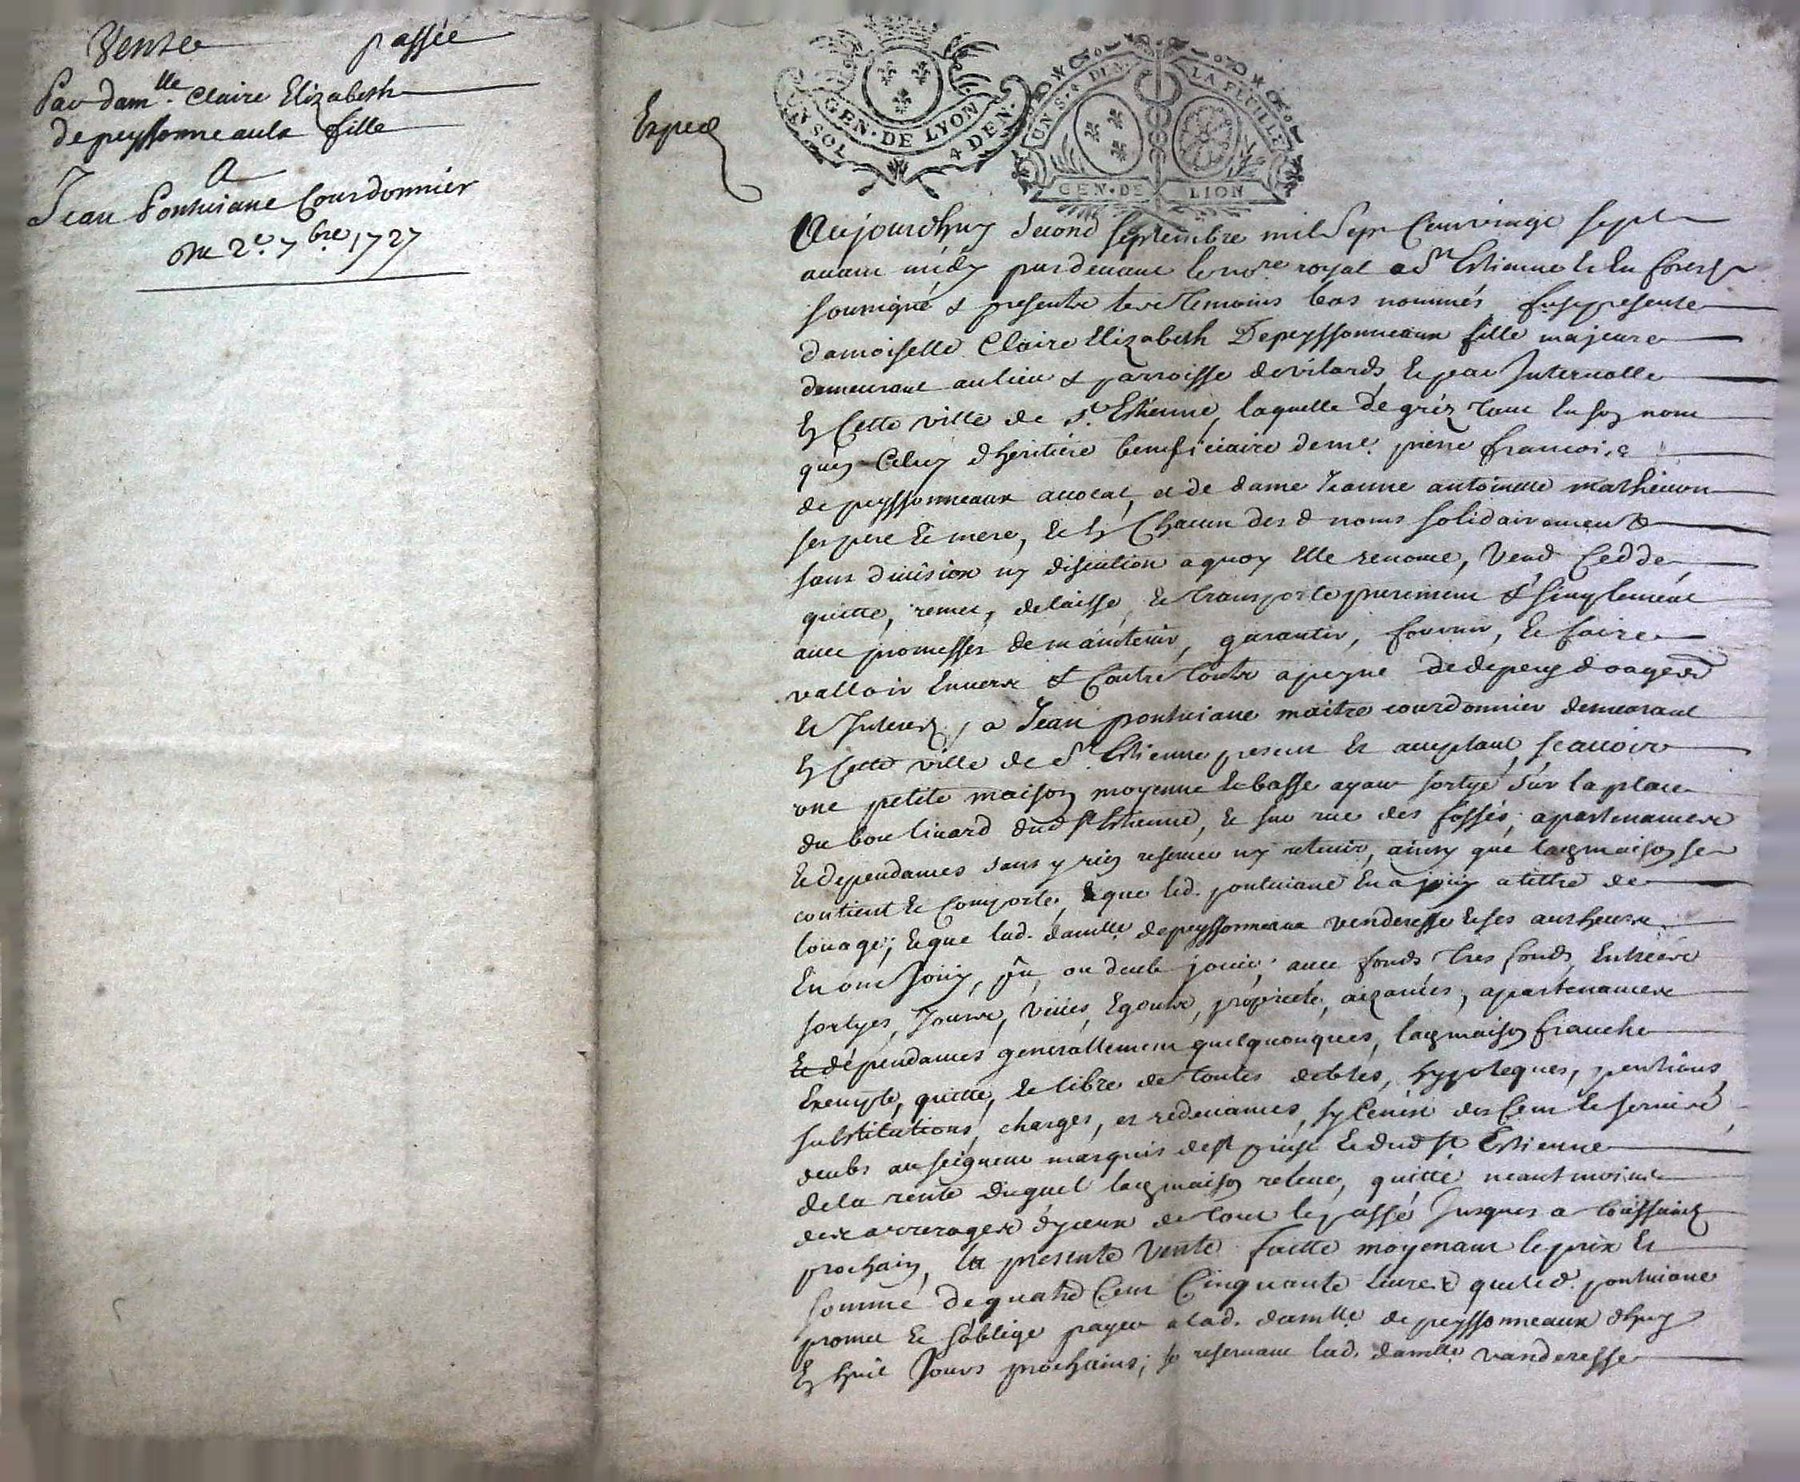 Vente passée
Par dam.lle Claire Elizabeth
depeyssonneaulx fille
A
Jean Pontuiane Courdonnier
du 2.e 7.bre 1727
Exped
UN SOL GEN·DE LYON 4 DEN·
UN S· 4 DEN· LA FEUILLE
GEN·DE LION
Aujourdhuy second septembre mil sept cent vingt sept
avant midy pardevant le no.re royal a S.t Estienne en forest
soussigné & presents les temoins bas nommés fust presente
damoiselle Claire Elizabeth Depeyssonneaux fille majeure
demeurant au lieu & parroisse de vilards, et par Intervalle
En Cette ville de S.t Estienne, laquelle de gréz tant En son nom
qu'en Celuy d'heritiere beneficiaire de m.e pierre francois
de peyssonneaux avocat, et de dame Jeanne antoinette mathevon
ses pere et mere, et En Chacun des d noms solidairement
sans division ny discution a quoy Elle renonce, Vend Cedde
quitte, remet, delaisse, et transporte purement & simplement
avec promesses de maintenir, garantir, fournir, et faire
valloir Envers & Contre touts a peyne de depens domages
et Interets, a Jean pontuiane maitre courdonnier demeurant
En Cette ville de S.t Estienne present et acceptant, scavoir
une petite maison moyenne et basse ayant sortye sur la place
du boulivard dud S.t Estienne, et sur rue des fossés, apartenances
et dependances sans y rien reserver ny retenir, ainsy que lad maison se
contient et Comporte, et que led. pontuiane En a jouy a tittre de
louage; et que lad. dam.lle depeyssonneaux venderesse et ses autheurs
En ont jouy, pû, ou deub jouir, avec fonds, tres fonds, Entrées
sortyes, Jours, veües, Egouts, proprieté, aizances, apartenances
et dépendances generallement quelquonques, lad maison franche
Exempte, quitte, et libre de toutes debtes, hypoteques, pentions
substitutions, charges, et redevances, sy Ce n'est des Cens et servis
deubs au seigneur marquis de S.t priest et dud S.t Estienne
de la rente duquel lad maison releve, quitte neantmoins
des arrerages d'yceux de tout le passé Jusques a toussaint
prochain, la presente Vente faitte moyenant le prix et
somme de quatre Cent Cinquante Livres que led. pontuiane
promet et s'oblige payer a lad. dam.lle depeyssonneaux d'huy
En huit Jours prochains; se reservant lad. dam.lle vanderesse